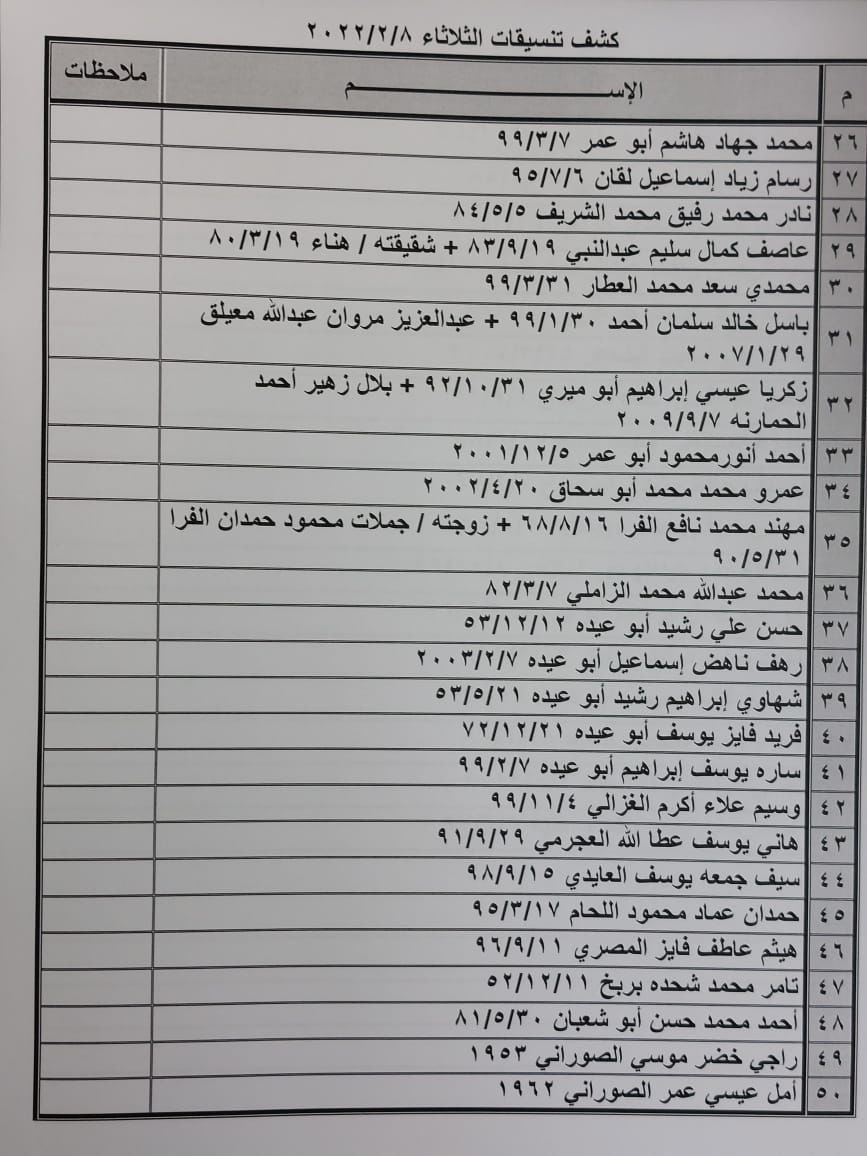 كشف تنسيقات الثلاثاء ٢٠٢٢/٢/٨
م الإســــــــم ملاحظات
٢٦ محمد جهاد هاشم أبو عمر ٩٩/٣/٧
٢٧ رسام زياد إسماعيل لقان ٩٥/٧/٦
٢٨ نادر محمد رفيق محمد الشريف ٨٤/٥/٥
٢٩ عاصف كمال سليم عبدالنبي ٨٣/٩/١٩ + شقيقته / هناء ٨٠/٣/١٩
٣٠ محمدي سعد محمد العطار ٩٩/٣/٣١
٣١ باسل خالد سلمان أحمد ٩٩/١/٣٠ + عبدالعزيز مروان عبدالله معيلق
٢٠٠٧/١/٢٩
٣٢ زكريا عيسي إبراهيم أبو ميري ٩٢/١٠/٣١ + بلال زهير أحمد
الحمارنه ٢٠٠٩/٩/٧
٣٣ أحمد أنورمحمود أبو عمر ٢٠٠١/١٢/٥
٣٤ عمرو محمد محمد أبو سحاق ٢٠٠٢/٤/٢٠
٣٥ مهند محمد نافع الفرا ٦٨/٨/١٦ + زوجته / جملات محمود حمدان الفرا
٩٠/٥/٣١
٣٦ محمد عبدالله محمد الزاملي ٨٢/٣/٧
٣٧ حسن علي رشيد أبو عيده ٥٣/١٢/١٢
٣٨ رهف ناهض إسماعيل أبو عيده ٢٠٠٣/٢/٧
٣٩ شهاوي إبراهيم رشيد أبو عيده ٥٣/٥/٢١
٤٠ فريد فايز يوسف أبو عيده ٧٢/١٢/٢١
٤١ ساره يوسف إبراهيم أبو عيده ٩٩/٢/٧
٤٢ وسيم علاء أكرم الغزالي ٩٩/١١/٤
٤٣ هاني يوسف عطا الله العجرمي ٩١/٩/٢٩
٤٤ سيف جمعه يوسف العايدي ٩٨/٩/١٥
٤٥ حمدان عماد محمود اللحام ٩٥/٣/١٧
٤٦ هيثم عاطف فايز المصري ٩٦/٩/١١
٤٧ تامر محمد شحده بربخ ٥٢/١٢/١١
٤٨ أحمد محمد حسن أبو شعبان ٨١/٥/٣٠
٤٩ راجي خضر موسي الصوراني ١٩٥٣
٥٠ أمل عيسي عمر الصوراني ١٩٦٢